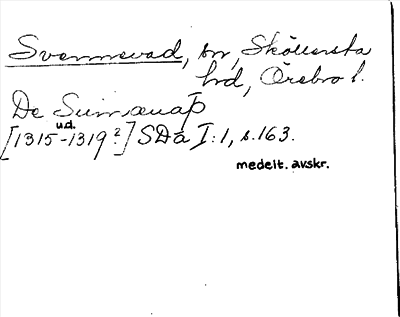 Svennevad, sn, Sköllersta
hd, Örebro l.
De Suinauap
[1315 u.d. -1319?] SDa I:1, s. 163.
medelt. avskr.